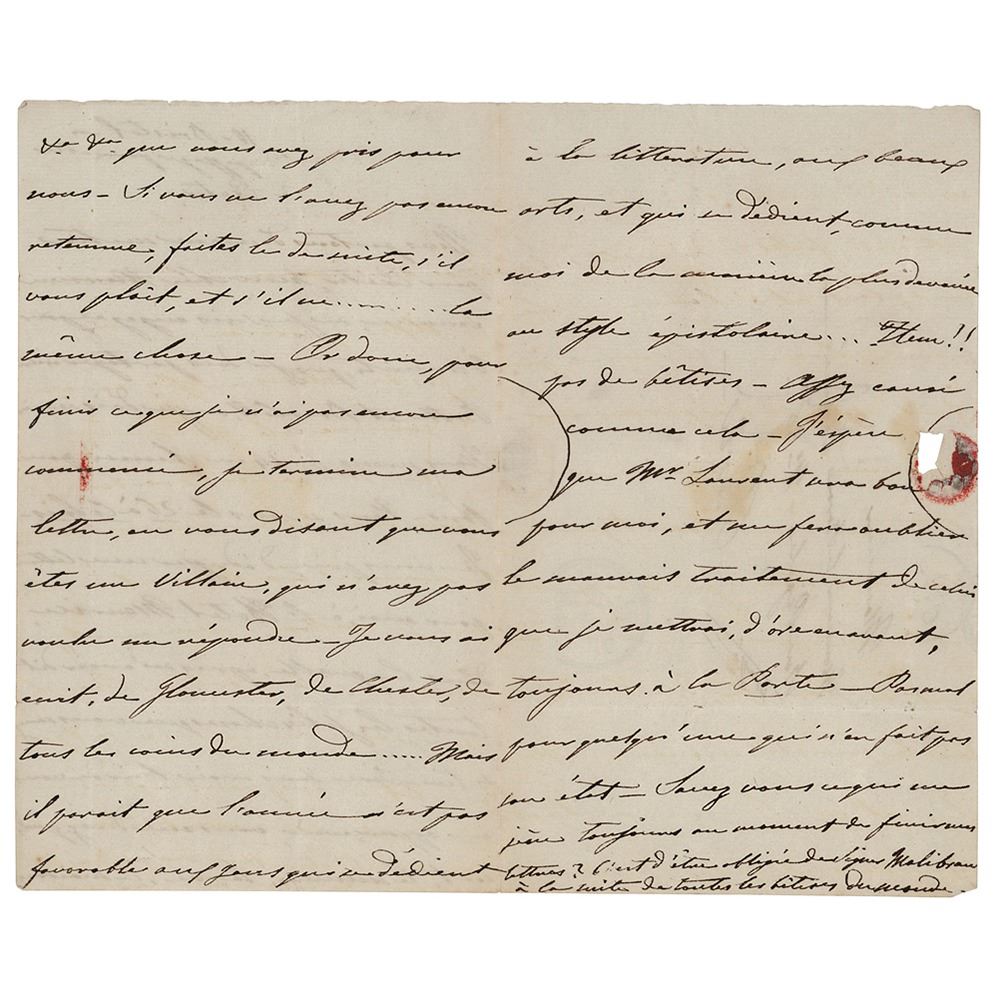 &a &a que vous avez pris pour
nous – Si vous ne l'avez pas encore
retenue, faites le de suite, s'il
vous plaît, et s'il ne ........ la
même chose – Or donc, pour
finir ce que je n'ai pas encore
commencé, je termine ma
lettre, en vous disant que vous
êtes un Villain, qui n'avez pas
voulu me répondre – Je vous ai
écrit, de Gloucester, de Chester, de
tous les coins du monde ..... Mais
il parait que l'année n'est pas
favorable aux gens qui se dédient
à la litterature, aux beaux
arts, et qui se dédient, comme
moi de la manière la plus
au style épistolaire ... Hem!!
pas de bêtises – causé
comme cela – J'éspère
que Mr. Laurent sera bon
pour moi, et me fera oublier
le mauvais traitement de celui
que je mettrai, d'ore en avant,
toujours, à la Porte – Pas mal
pour quelqu'une qui n'en fait pas
son état – Savez vous ce qui me
gène toujours au moment de finir mes
lettres? C'est d'être obligée de signer Malibran
à la suite de toutes les bêtises du monde.